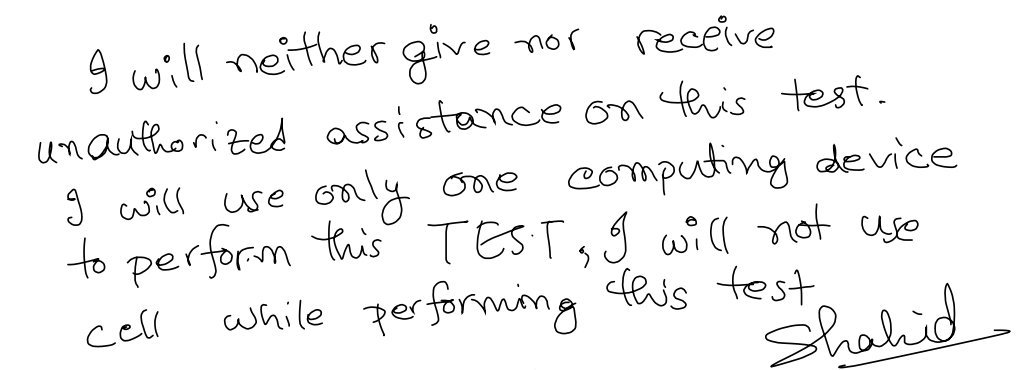 I will neither give nor receive
unauthorized assistance on this test.
I will use only one computing device
to perform this TEST, I will not use
cell while performing this test
Shahid